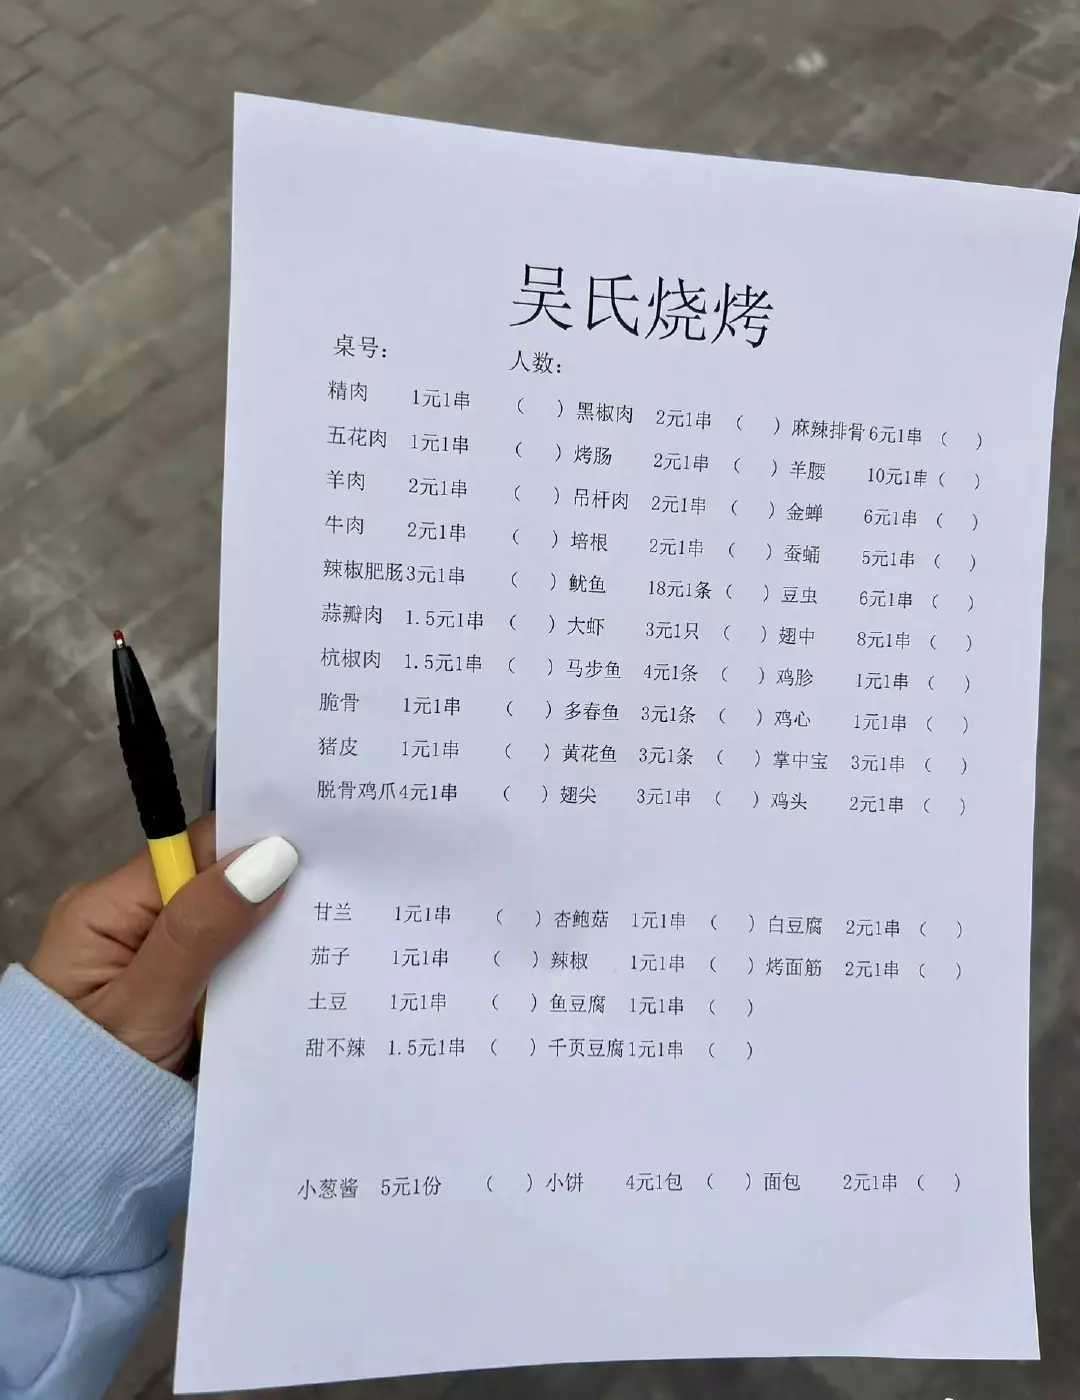 吴氏烧烤
桌号： 人数：
精肉 1元1串 （ ） 黑椒肉 2元1串 （ ） 麻辣排骨 6元1串 （ ）
五花肉 1元1串 （ ） 烤肠 2元1串 （ ） 羊腰 10元1串 （ ）
羊肉 2元1串 （ ） 吊杆肉 2元1串 （ ） 金蝉 6元1串 （ ）
牛肉 2元1串 （ ） 培根 2元1串 （ ） 蚕蛹 5元1串 （ ）
辣椒肥肠 3元1串 （ ） 鱿鱼 18元1条 （ ） 豆虫 6元1串 （ ）
蒜瓣肉 1.5元1串 （ ） 大虾 3元1只 （ ） 翅中 8元1串 （ ）
杭椒肉 1.5元1串 （ ） 马步鱼 4元1条 （ ） 鸡胗 1元1串 （ ）
脆骨 1元1串 （ ） 多春鱼 3元1条 （ ） 鸡心 1元1串 （ ）
猪皮 1元1串 （ ） 黄花鱼 3元1条 （ ） 掌中宝 3元1串 （ ）
脱骨鸡爪 4元1串 （ ） 翅尖 3元1串 （ ） 鸡头 2元1串 （ ）
甘兰 1元1串 （ ） 杏鲍菇 1元1串 （ ） 白豆腐 2元1串 （ ）
茄子 1元1串 （ ） 辣椒 1元1串 （ ） 烤面筋 2元1串 （ ）
土豆 1元1串 （ ） 鱼豆腐 1元1串 （ ）
甜不辣 1.5元1串 （ ） 千页豆腐 1元1串 （ ）
小葱酱 5元1份 （ ） 小饼 4元1包 （ ） 面包 2元1串 （ ）